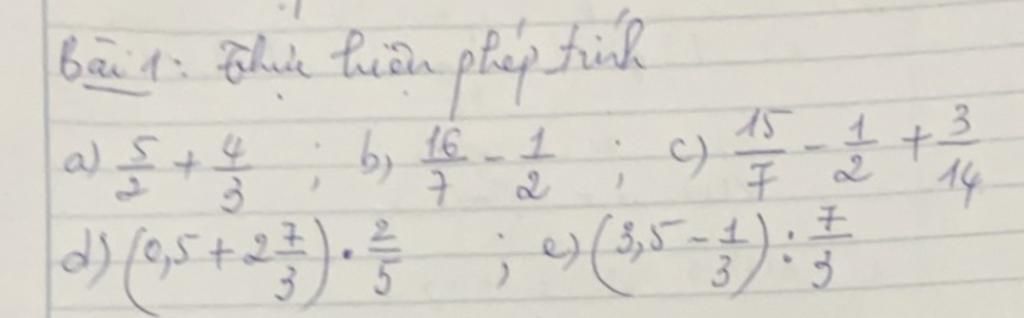 Bài 1: Thực hiện phép tính
a) 5/2 + 4/3 ; b) 16/7 - 1/2 ; c) 15/7 - 1/2 + 3/14
d) (0,5 + 2 7/3) . 2/5 ; e) (3,5 - 1/3) : 7/3